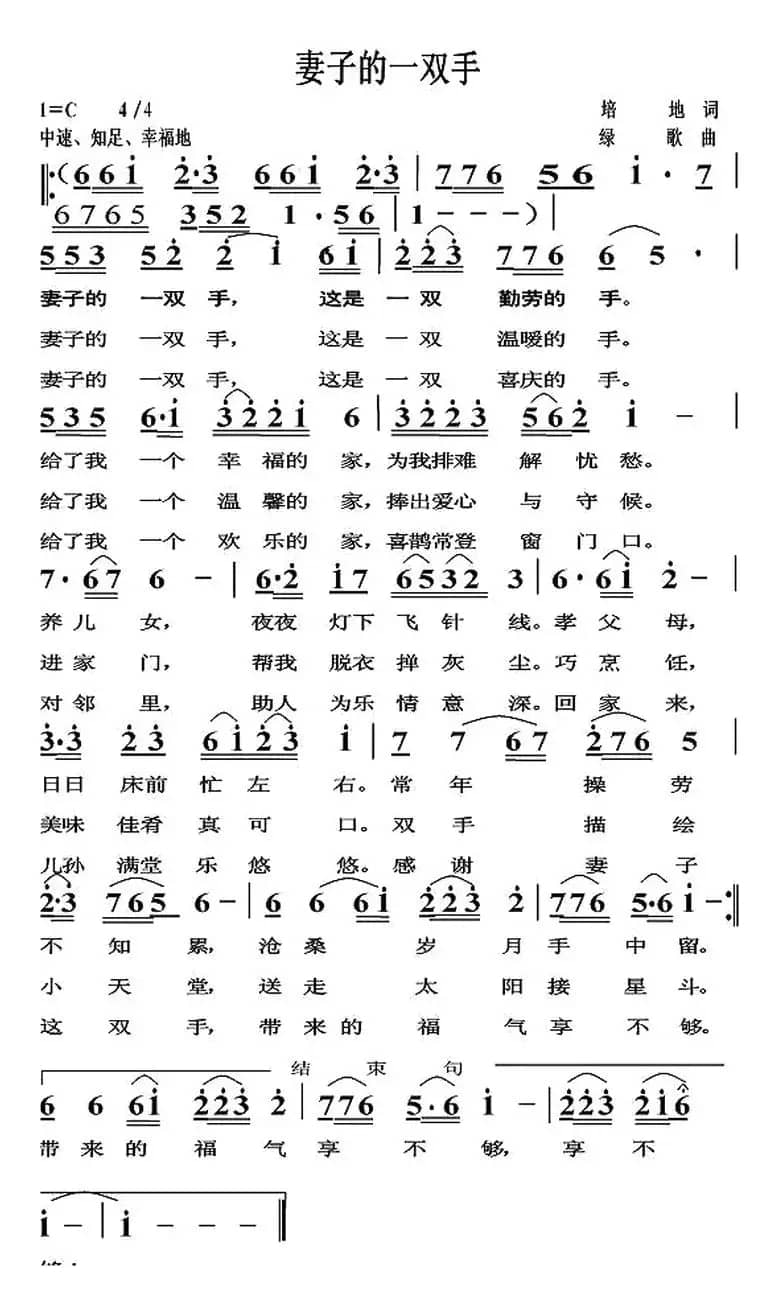 妻子的一双手
1=C 4/4 培 地 词
中速、知足、幸福地 绿 歌 曲
(6 6 1 2·3 6 6 1 2·3 | 7 7 6 5 6 1 · 7 |
6 7 6 5 3 5 2 1 · 5 6 | 1 - - - ) |
5 5 3 5 2 2 1 6 1 | 2 2 3 7 7 6 6 5 · |
妻子的 一双 手, 这是 一 双 勤劳的 手。
妻子的 一双 手, 这是 一 双 温暖的 手。
妻子的 一双 手, 这是 一 双 喜庆的 手。
5 3 5 6·1 3 2 2 1 6 | 3 2 2 3 5 6 2 1 - |
给了我 一个 幸 福的 家,为我排难 解 忧 愁。
给了我 一个 温 馨的 家,捧出爱心 与 守 候。
给了我 一个 欢 乐的 家,喜鹊常登 窗 门 口。
7· 6 7 6 - | 6·2 1 7 6 5 3 2 3 | 6· 6 1 2 - |
养 儿 女, 夜夜 灯下 飞 针 线。孝 父 母,
进 家 门, 帮我 脱衣 掸 灰 尘。巧 烹 饪,
对 邻 里, 助人 为乐 情 意 深。回 家 来,
3·3 2 3 6 1 2 3 1 | 7 7 6 7 2 7 6 5 |
日日 床前 忙 左 右。常 年 操 劳
美味 佳肴 真 可 口。双 手 描 绘
儿孙 满堂 乐 悠 悠。感 谢 妻 子
2·3 7 6 5 6 - | 6 6 6 1 2 2 3 2 | 7 7 6 5·6 1 - :||
不 知 累, 沧 桑 岁 月 手 中 留。
小 天 堂, 送 走 太 阳 接 星 斗。
这 双 手, 带 来 的 福 气 享 不 够。
结 束 句
6 6 6 1 2 2 3 2 | 7 7 6 5·6 1 - | 2 2 3 2 1 6
带 来 的 福 气 享 不 够, 享 不
1 - | 1 - ||